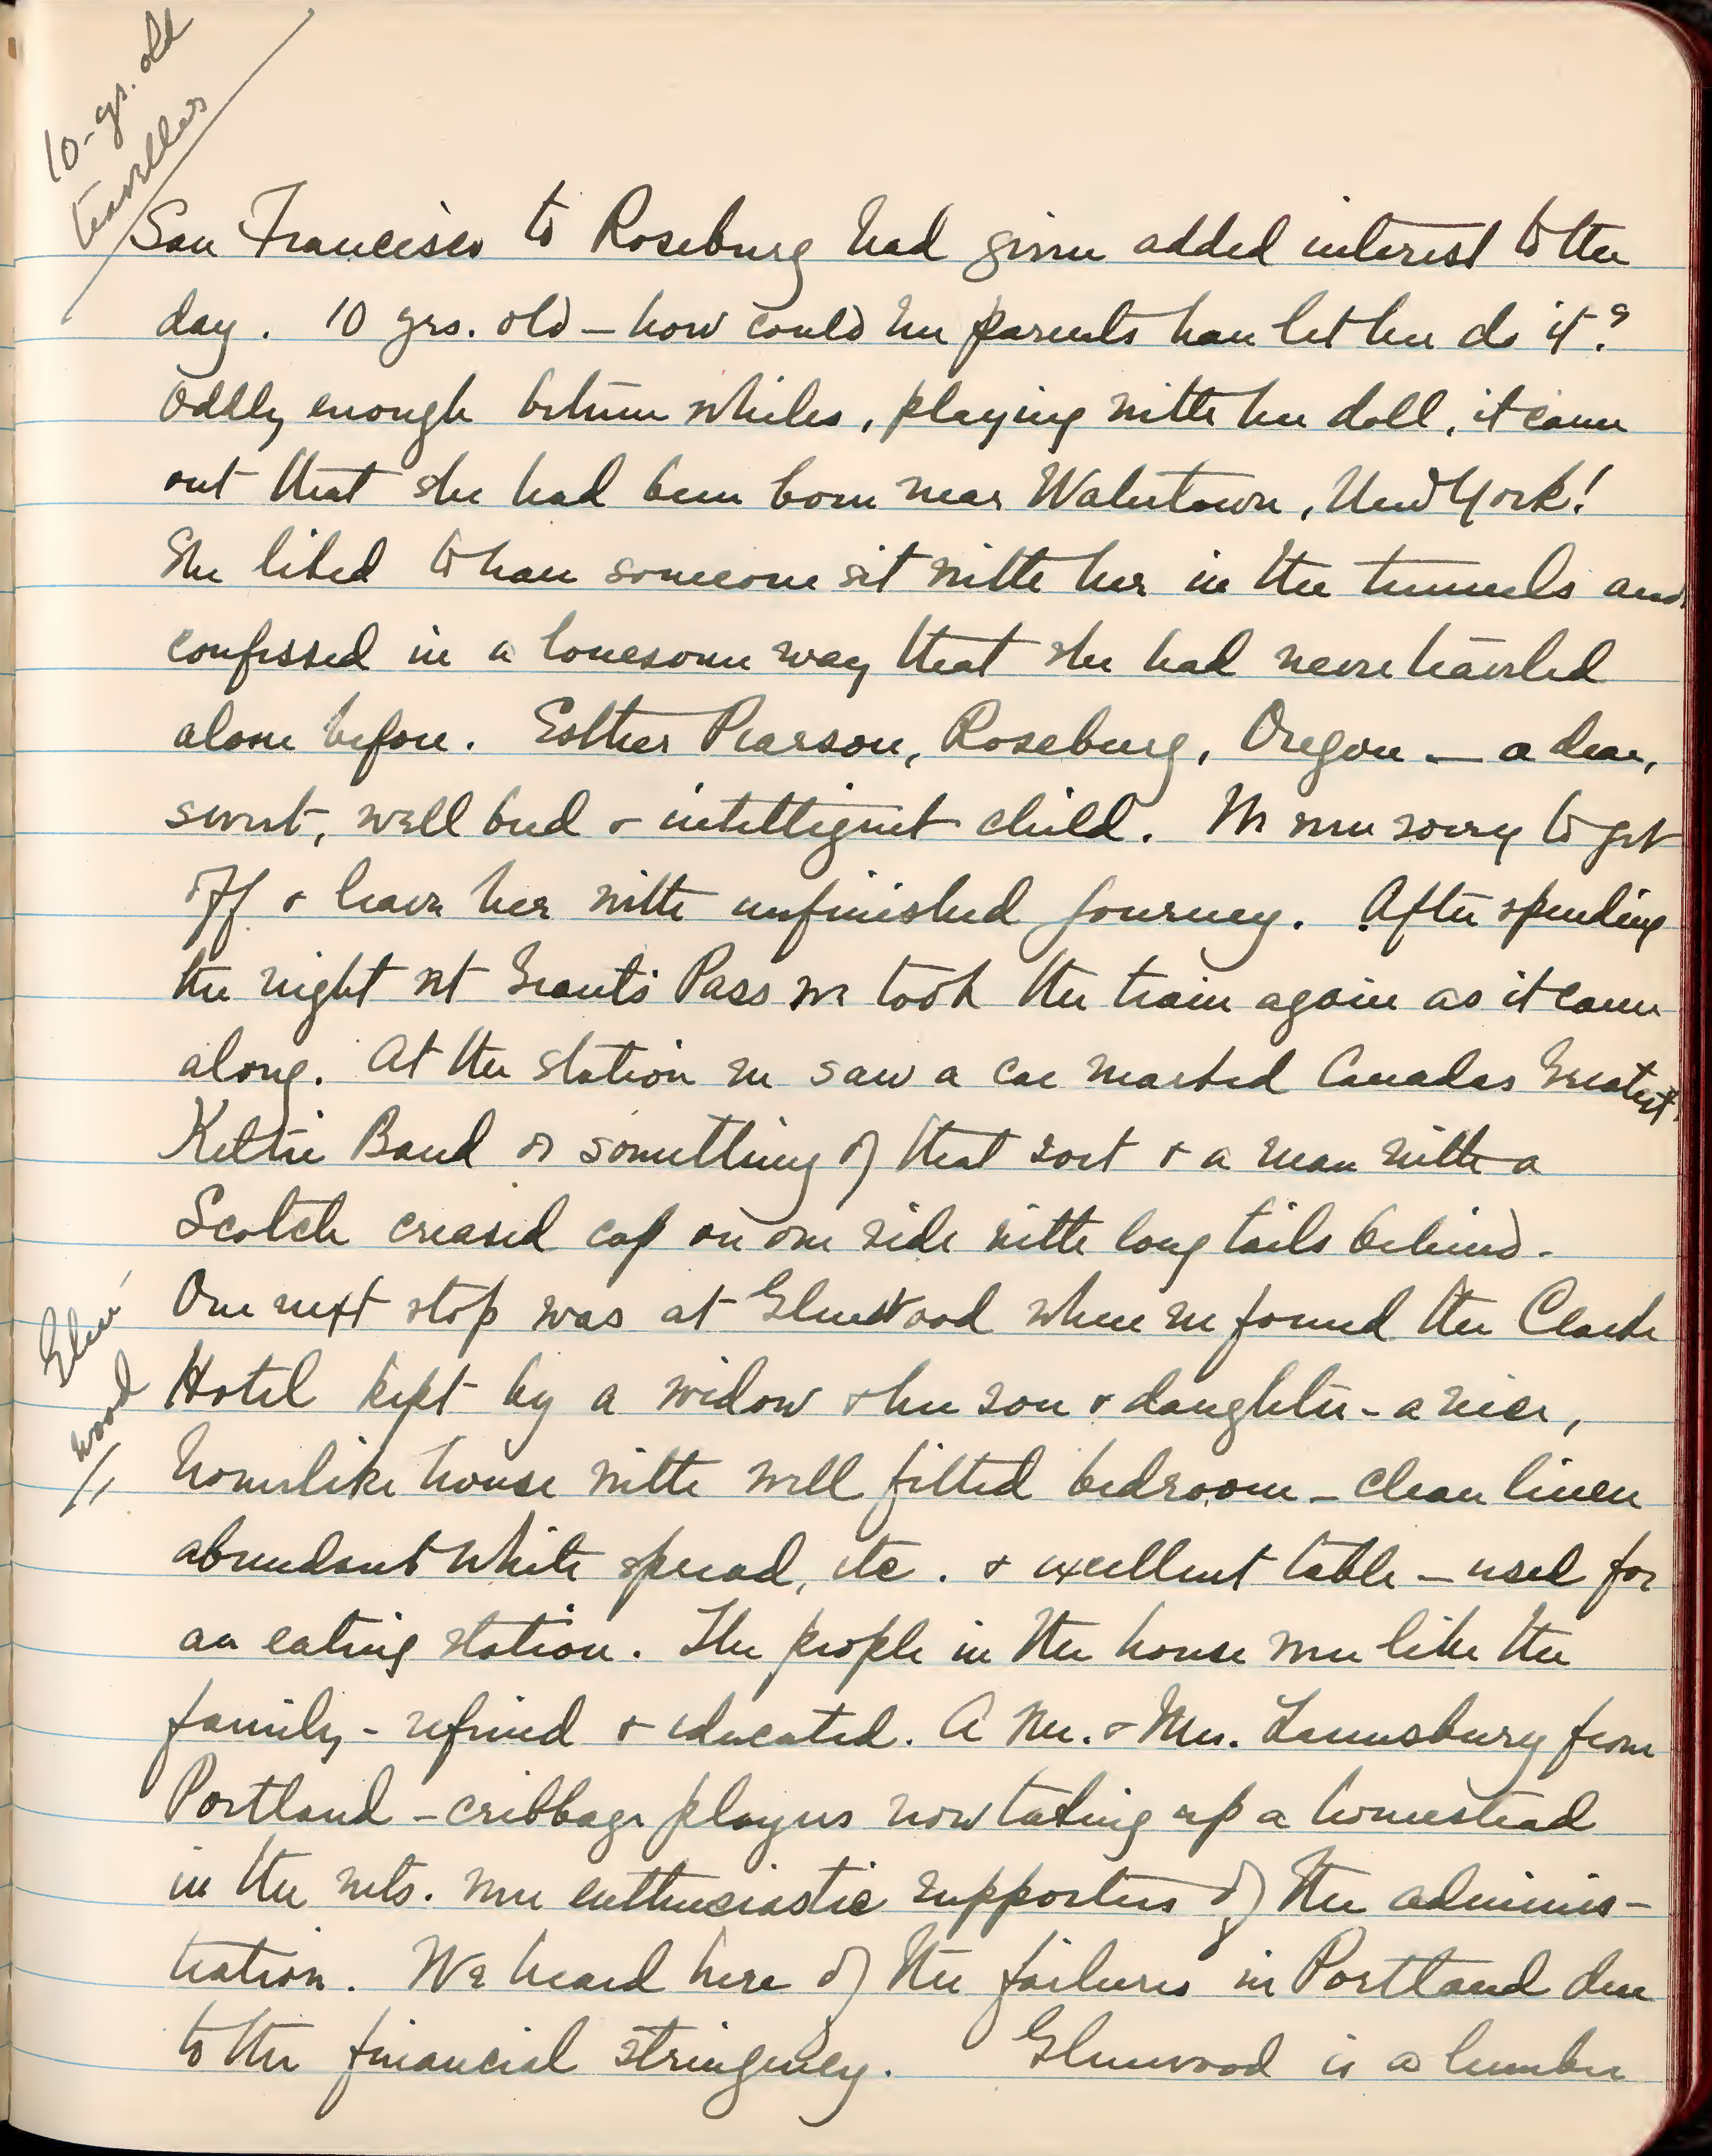 10-yr. old
traveller
San Francisco to Roseburg had given added interest to the
day. 10 yrs. old – how could her parents have let her do it?
Oddly enough between whiles, playing with her doll, it came
out that she had been born near Watertown, New York!
She liked to have someone sit with her in the tunnels and
confessed in a lonesome way that she had never traveled
alone before. Esther Pearson, Roseburg, Oregon – a dear,
sweet, well bred & intelligent child. We were sorry to get
off & leave her with unfinished journey. After spending
the night at Grant's Pass we took the train again as it came
along. At the station we saw a car marked Canadas Greatest
Keltie Band or something of that sort & a man with a
Scotch creased cap on one side with long tails behind.
Our next stop was at Glenwood where we found the Clarke
Glen-
wood
Hotel kept by a widow & her son & daughter – a nice,
homelike house with well fitted bedroom – clean linen
abundant white spread, etc. & excellent table – used for
an eating station. The people in the house were like the
family – refined & educated. A Mr. & Mrs. Lounsbury from
Portland – cribbage players now taking up a homestead
in the mts. were enthusiastic supporters of the adminis-
tration. We heard here of the failures in Portland due
to the financial stringency. Glenwood is a lumber